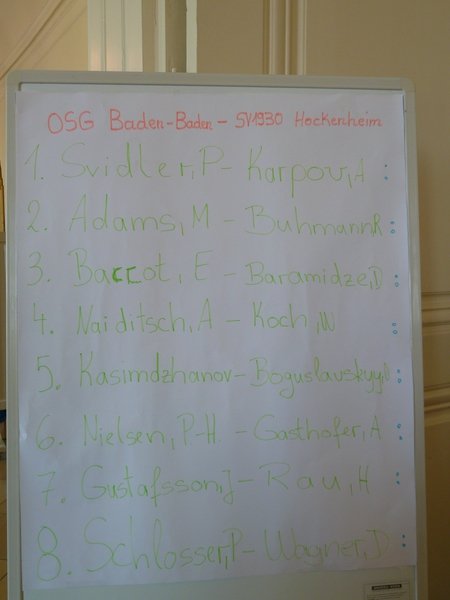 OSG Baden-Baden - SV1930 Hockenheim
1. Svidler, P - Karpov, A :
2. Adams, M - Buhmann, R :
3. Baccot, E - Baramidze, D :
4. Naiditsch, A - Koch, W :
5. Kasimdzhanov - Boguslavskyy, D :
6. Nielsen, P-H. - Gasthofer, A :
7. Gustafsson, J - Rau, H :
8. Schlosser, P - Wagner, D :